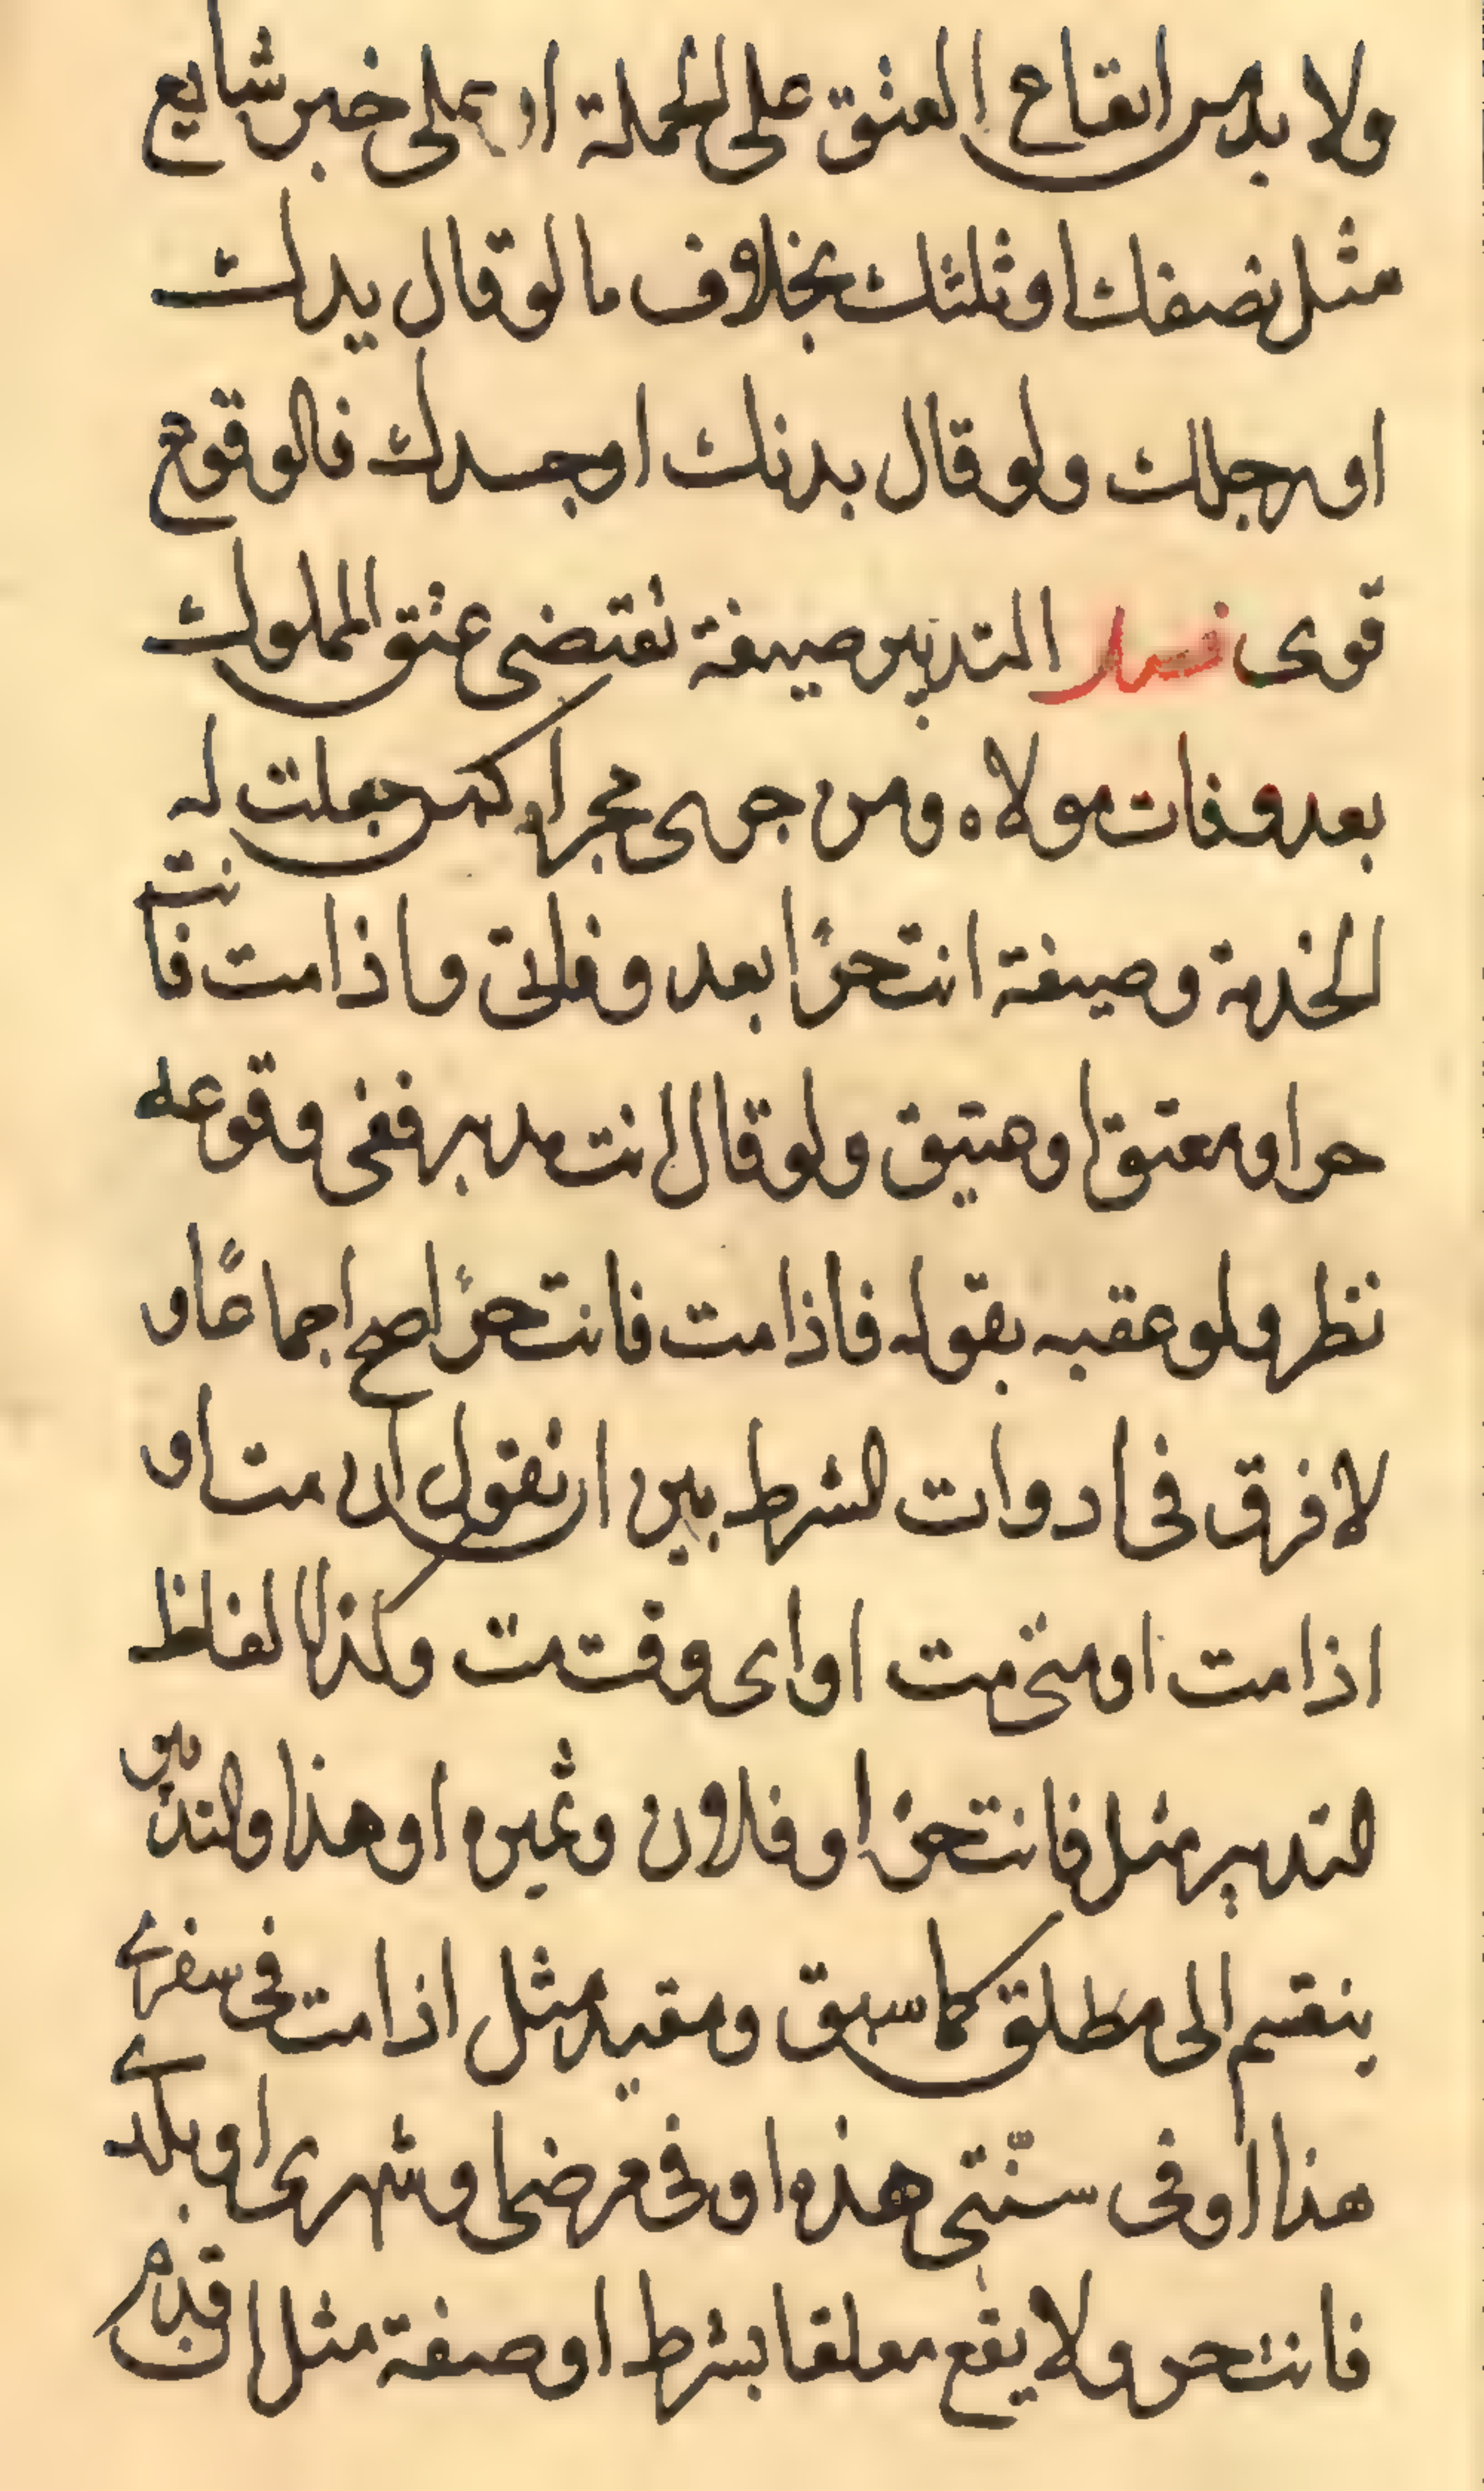 ولا بد من ايقاع العتق على الجملة او على خبر شايع
مثل نصفك او ثلثك بخلاف ما لو قال يدك
او رجلك ولو قال بدنك او جسدك فالوقوع
قوى فصل التدبير صيغة تقتضى عتق المملوك
بعد وفات مولاه ومن جرى مجراه كمن جعلت له
الخدمة وصيغة انت حرًا بعد وفاتى واذا مت فانت
حر او معتق او عتيق ولو قال انت مدبر ففى وقوعه
نظر ولو عقبه بقوله فاذا مت فانت حرًا صح اجماعًا و
لا فرق فى ادوات الشرط بين ان نقول ان مت او
اذا مت او متى مت او اى وقت مت وكذا الفاظ
التدبير مثل فانت حر او فلان وغيره او هذا والتدبير
ينقسم الى مطلق كما سبق ومقيد مثل اذا مت فى سفرى
هذا او فى سنّتى هذه او فى مرضى او شهرى او بلدى
فانت حر ولا يقع معلقا بشرط او صفة مثل ان قدم